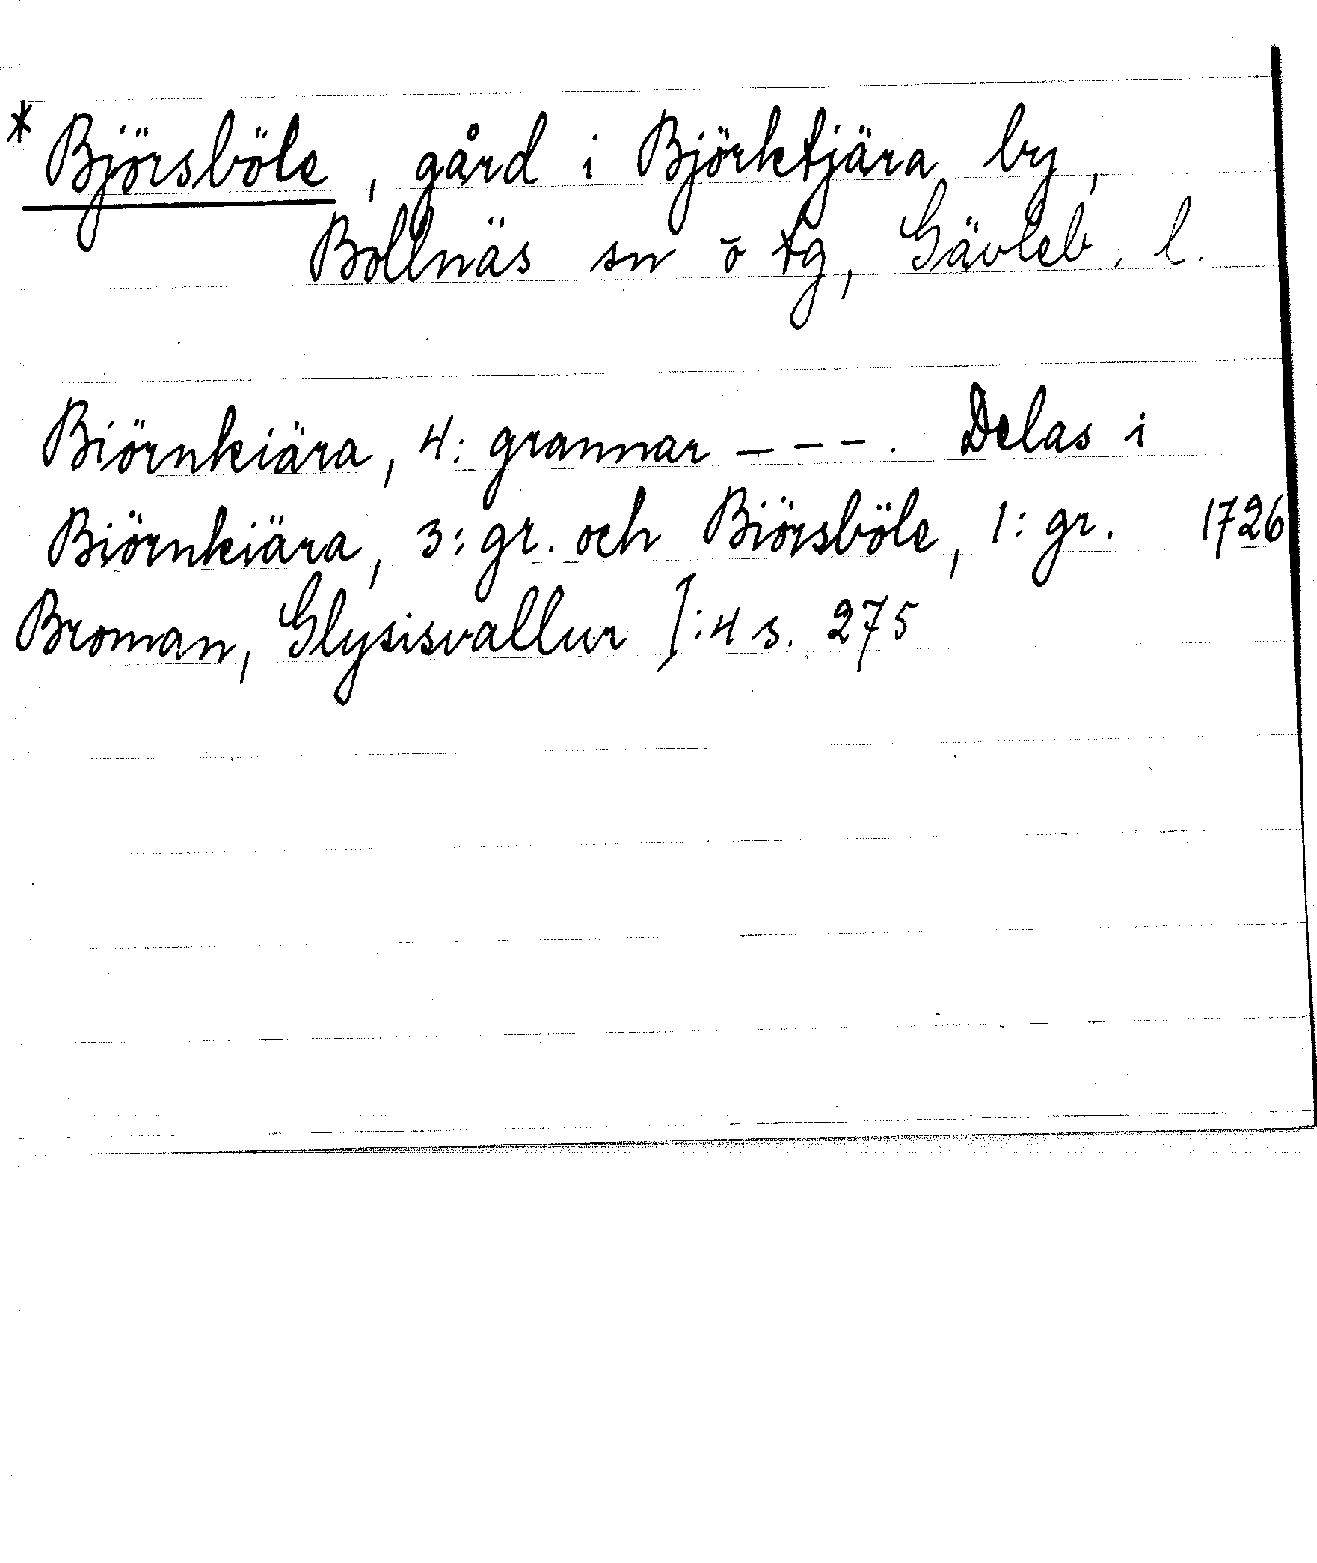 * Björsböle, gård i Björktjära by,
Bollnäs sn o tg, Gävleb. l.
Biörnkiära, 4: grannar - - - . Delas i
Biörnkiära, 3: gr. och Biörsböle, 1: gr. 1726
Broman, Glysisvallur I:4 s. 275